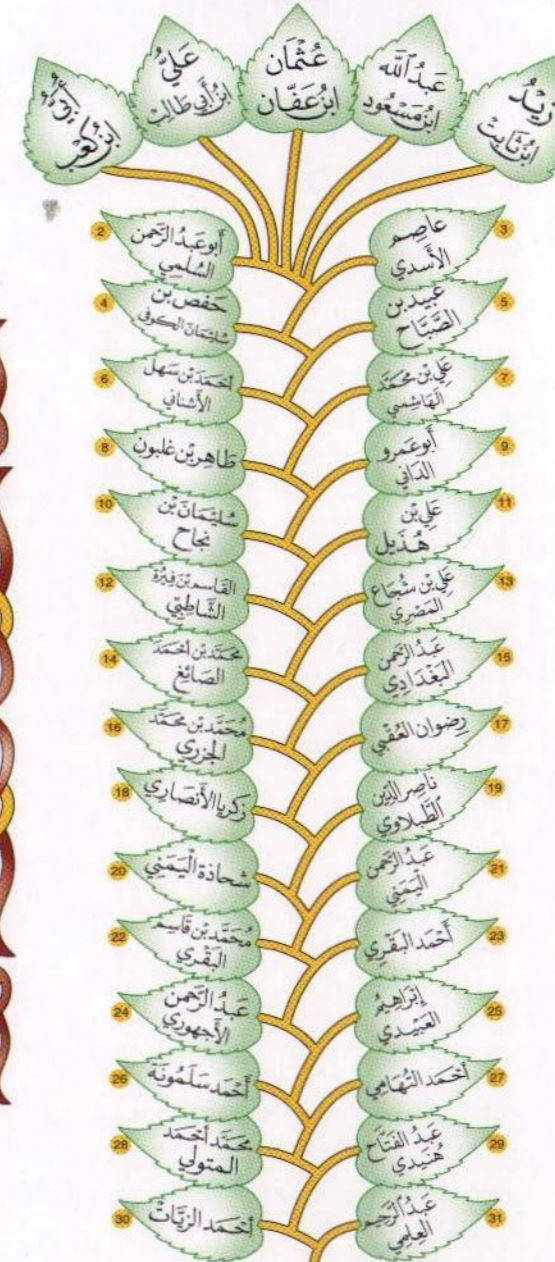 زَيْدُ
ابْنُ ثَابِت
عَبْدُ اللَّه
ابْنُ مَسْعُود
عُثْمَان
ابْنُ عَفَّان
عَلِيُّ
ابْنُ أَبِي طَالِبْ
أُبَيُّ
ابْنُ كَعْب
2
أبو عَبْدُ الرَّحمن
السُّلَمي
3
عاصِم
الأَسدي
4
حَفص بن
سُلَيْمَان الكوفي
5
عبيد بن
الصَّبَّاح
6
أحمَد بن سَهل
الأشناني
7
عَلي بن محمَّد
الهَاشمي
8
طاهِر بن غلبون
9
أبو عَمرو
الدَاني
10
سُليْمَان بْن
نجاح
11
عَلي بْن
هُذَيل
12
القاسم بْن فِيرُّة
الشَّاطِبيّ
13
عَلي بْن شُجَاع
المَصْري
14
محَمَّد بن أحمَد
الصَائِغ
15
عَبْدُ الرَّحمن
البَغْدَادِي
16
مُحَمَّد بْن محَمَّد
الجزري
17
رضوان العُقْبي
18
زكريا الأَنْصَاري
19
ناصِر الدِّين
الطَّبلاوي
20
شحاذة الْيَمَنِي
21
عَبْدُ الرَّحمن
اليَمَني
22
مُحَمَّد بْن قَاسِم
البَقَري
23
أَحْمَد البَقَري
24
عَبْدُ الرَّحمن
الأجهوري
25
إبْرَاهِيمُ
العَبَيْدي
26
أَحْمَد سَلَمُونَة
27
أحْمَد التُهَامِي
28
محَمَّد أَحْمَد
المتولي
29
عَبْدُ الفَتَّاح
هُنَيدي
30
أحمَد الزيَّاتْ
31
عَبْدُ الرَّحِيم
العِلمي